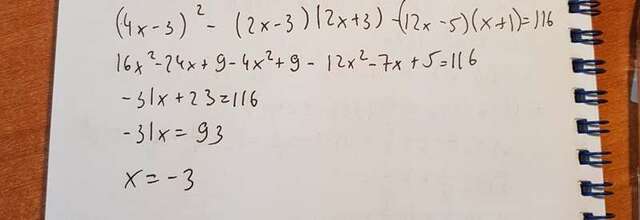 (4x-3)² - (2x-3)(2x+3) -(12x-5)(x+1)=116
16x²-24x+9-4x²+9-12x²-7x+5=116
-31x+23=116
-31x=93
x=-3